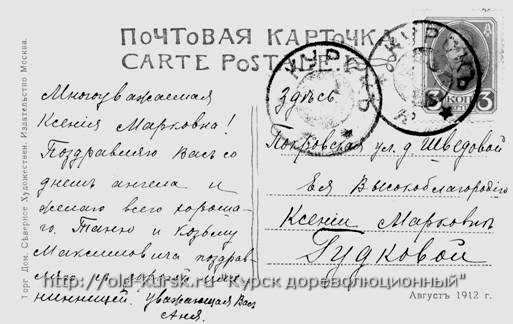 ПОЧТОВАЯ КАРТОЧКА
CARTE POSTALE
КУРСКЪ
КУРСКЪ
3 КОП 3
Многоуважаемая
Ксенія Марковна!
Поздравляю Васъ со
днемъ ангела и
желаю всего хороша-
го. Таню и Козьму
Максимовича поздрав-
ляю
нинницей. Уважающая Васъ
Аня.
Здѣсь
Покровская ул. д Шведовой
Ея Высокоблагородію
Ксеніи Марковнѣ
Гудковой
Торг. Дом. Сѣверное Художествен. Издательство Москва.
Августъ 1912 г.
http://old-kursk.ru "Курск дореволюционный"